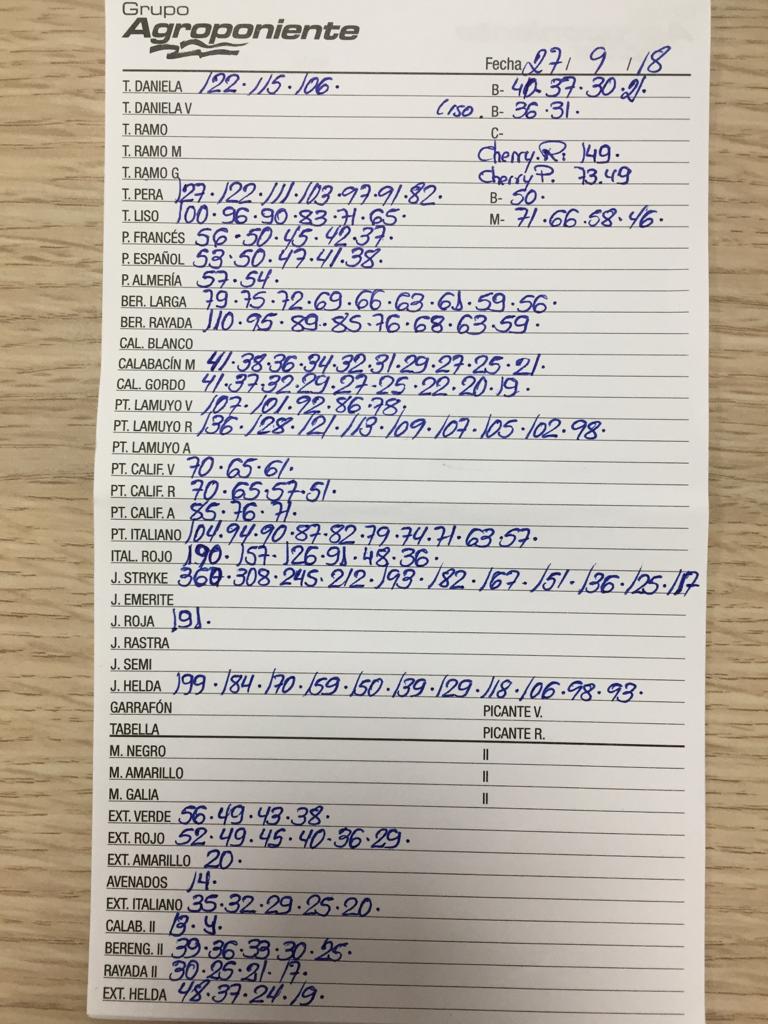 Grupo
Agroponiente
Fecha 27 / 9 / 18
T. DANELA 122 · 115 · 106 · B- 40 · 37 · 30 · 21 ·
T. DANIELA V Liso . B- 36 · 31 ·
T. RAMO C-
T. RAMO M Cherry. R: 149 ·
T. RAMO G Cherry P. 73.49
T. PERA 127 · 122 · 111 · 103 · 97 · 91 · 82 · B- 50 ·
T. LISO 100 · 96 · 90 · 83 · 71 · 65 · M- 71 · 66 · 58 · 46 ·
P. FRANCÉS 56 · 50 · 45 · 42 · 37 ·
P. ESPAÑOL 53 · 50 · 47 · 41 · 38 ·
P. ALMERÍA 57 · 54 ·
BER. LARGA 79 · 75 · 72 · 69 · 66 · 63 · 61 · 59 · 56 ·
BER. RAYADA 110 · 95 · 89 · 85 · 76 · 68 · 63 · 59 ·
CAL. BLANCO
CALABACÍN M 41 · 38 · 36 · 34 · 32 · 31 · 29 · 27 · 25 · 21 ·
CAL. GORDO 41 · 37 · 32 · 29 · 27 · 25 · 22 · 20 · 19 ·
PT. LAMUYO V 107 · 101 · 92 · 86 · 78 ·
PT. LAMUYO R 136 · 128 · 121 · 113 · 109 · 107 · 105 · 102 · 98 ·
PT. LAMUYO A
PT. CALIF. V 70 · 65 · 61 ·
PT. CALIF. R 70 · 65 · 57 · 51 ·
PT. CALIF. A 85 · 76 · 71 ·
PT. ITALIANO 104 · 94 · 90 · 87 · 82 · 79 · 74 · 71 · 63 · 57 ·
ITAL. ROJO 190 · 157 · 126 · 91 · 48 · 36 ·
J. STRYKE 360 · 308 · 245 · 212 · 193 · 182 · 167 · 151 · 136 · 125 · 117
J. EMERITE
J. ROJA 191 ·
J. RASTRA
J. SEMI
J. HELDA 199 · 184 · 170 · 159 · 150 · 139 · 129 · 118 · 106 · 98 · 93 ·
GARRAFÓN PICANTE V.
TABELLA PICANTE R.
M. NEGRO II
M. AMARILLO II
M. GALIA II
EXT. VERDE 56 · 49 · 43 · 38 ·
EXT. ROJO 52 · 49 · 45 · 40 · 36 · 29 ·
EXT. AMARILLO 20 ·
AVENADOS 14 ·
EXT. ITALIANO 35 · 32 · 29 · 25 · 20 ·
CALAB. II 13 ·
BERENG. II 39 · 36 · 33 · 30 · 25 ·
RAYADA II 30 · 25 · 21 · 17 ·
EXT. HELDA 48 · 37 · 24 · 19 ·